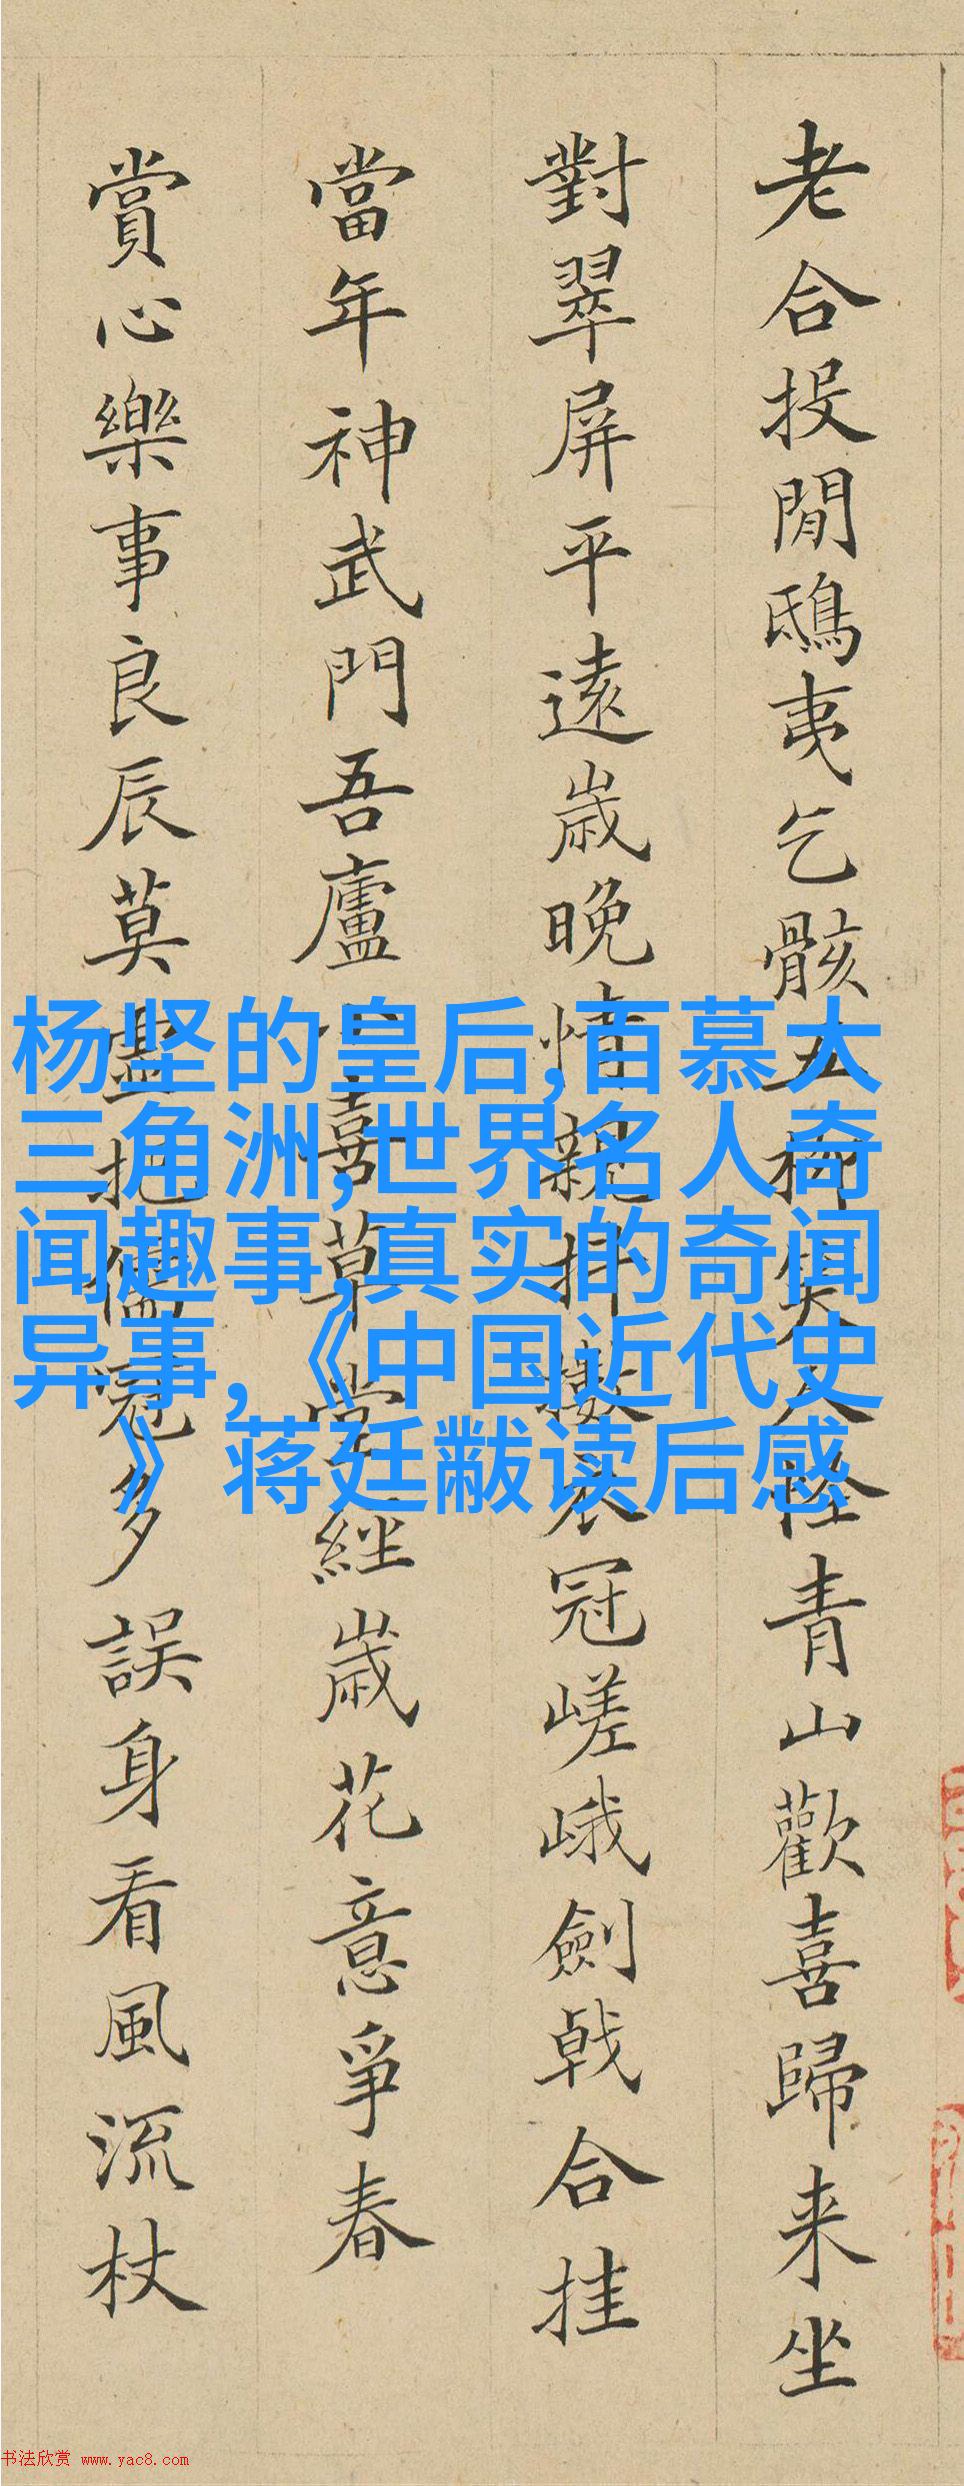 老合投閒鴟夷乞骸五柳笑人怪青山歡喜歸来坐
對翠屏平遠歲晚情親抖擻衣冠嵯峨劍戟合挂
當年神武門吾廬喜草堂經歲花意爭春
賞心樂事良辰莫盡抛儒冠多誤身看風流杖
杨坚的皇后,百慕大
三角洲,世界名人奇
闻趣事,真实的奇闻
异事,《中国近代史
》 蒋廷黻读后感
书法欣赏 www.yac8.com